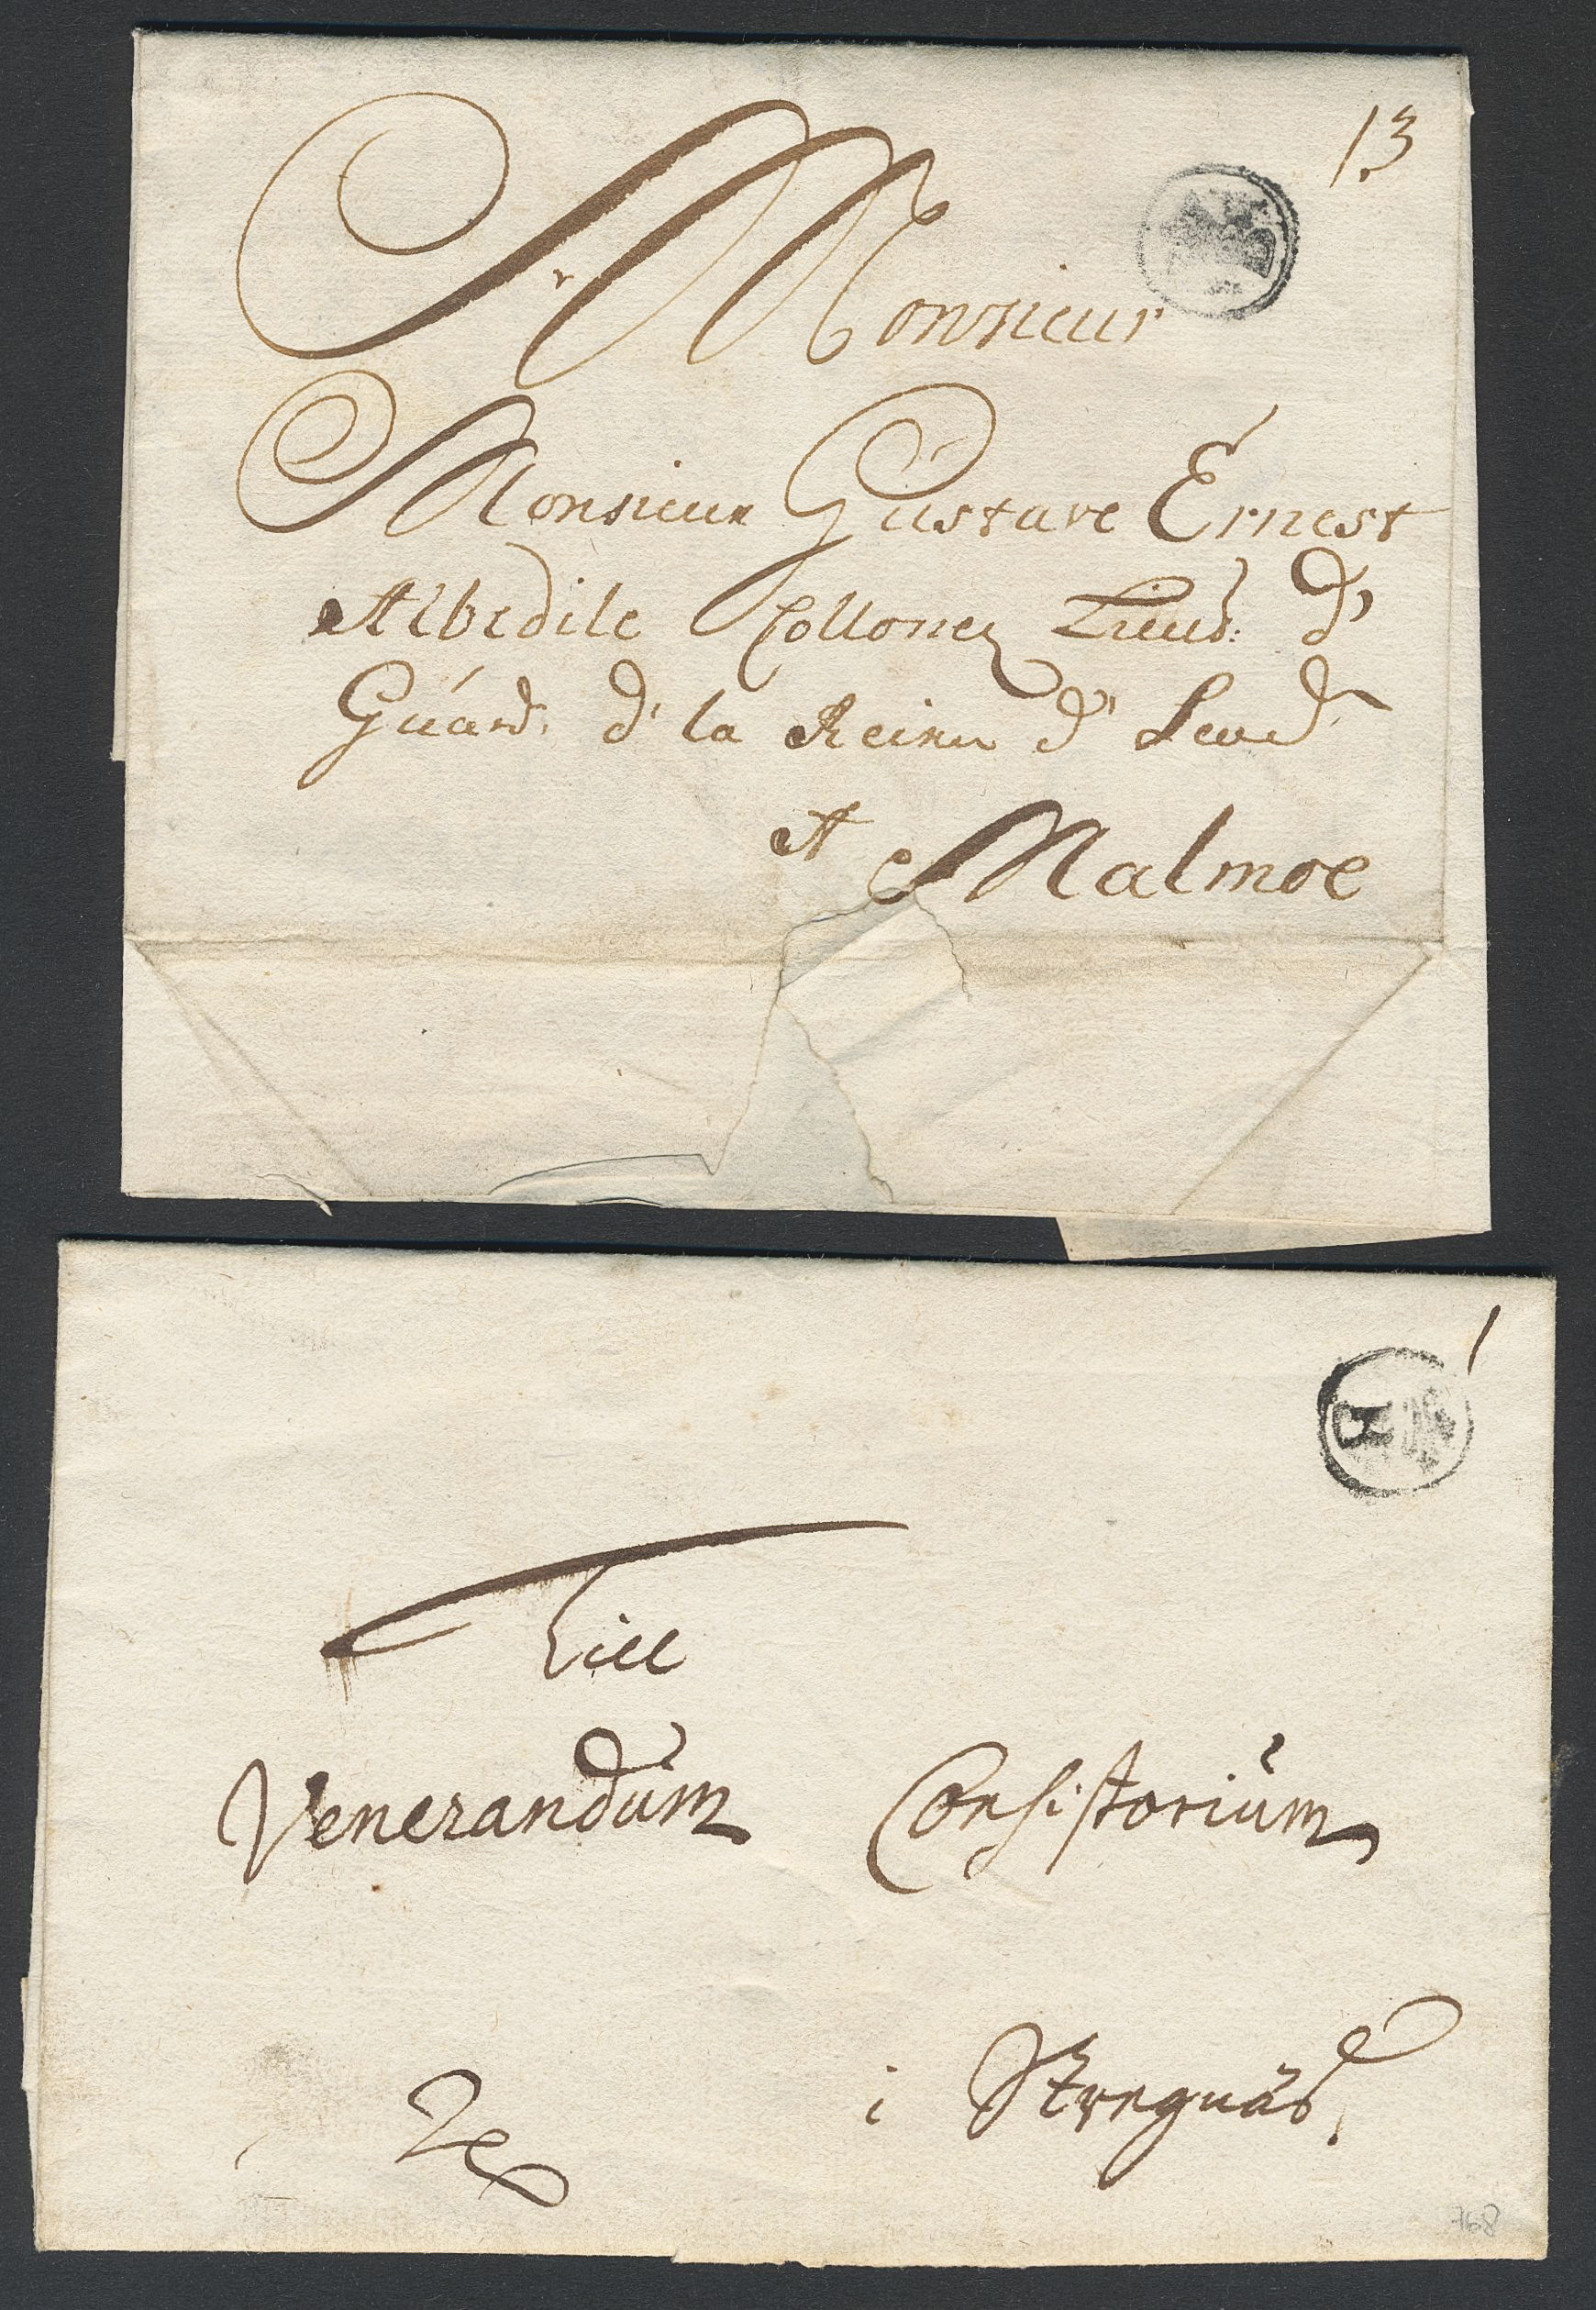 13
Monsieur
Monsieur Gustave Ernest
Albedile Collonel Lieut: d'
Guard. d' la Reine d' Sued
A Malmoe
1
Till
Venerandum Consistorium
i Stregnäs
768